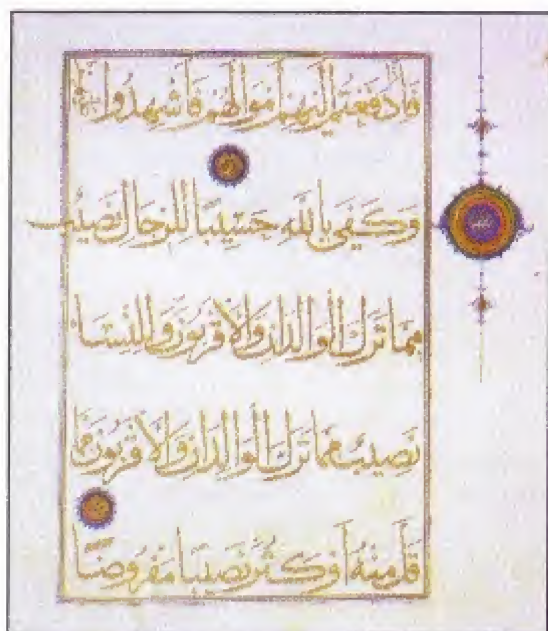 فَإِذَا دَفَعْتُمْ إِلَيْهِمْ أَمْوَالَهُمْ فَأَشْهِدُوا
وَكَفَى بِاللَّهِ حَسِيبًا لِلرِّجَالِ نَصِيبٌ
مِمَّا تَرَكَ الْوَالِدَانِ وَالْأَقْرَبُونَ وَلِلنِّسَاءِ
نَصِيبٌ مِمَّا تَرَكَ الْوَالِدَانِ وَالْأَقْرَبُونَ مِمَّا
قَلَّ مِنْهُ أَوْ كَثُرَ نَصِيبًا مَفْرُوضًا